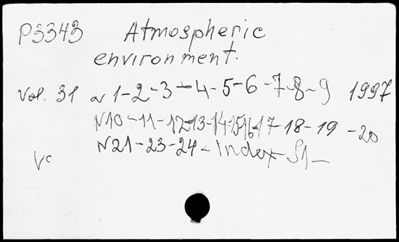 P3343 Atmospheric
environment.
Vol. 31 N 1-2-3-4-5-6-7-8-9 1997
N10-11-12-13-14-15-16-17-18-19-20
N21-23-24-Index-S1-
Vc